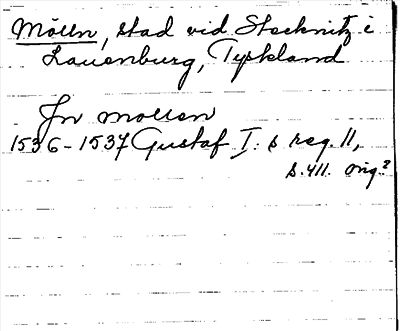 Mölln, stad vid Stecknitz i
Lauenburg, Tyskland
Jn mollen
1536-1537 Gustaf I:s reg. 11,
s. 411. orig.?